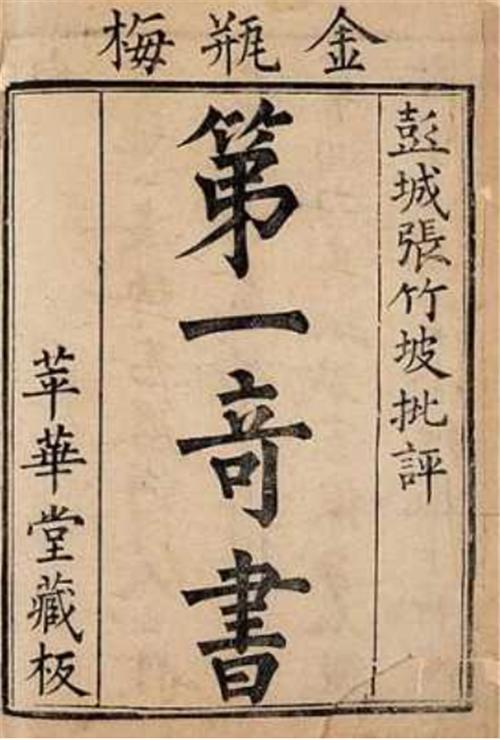 金瓶梅
彭城張竹坡批評
第一竒書
苹華堂藏板